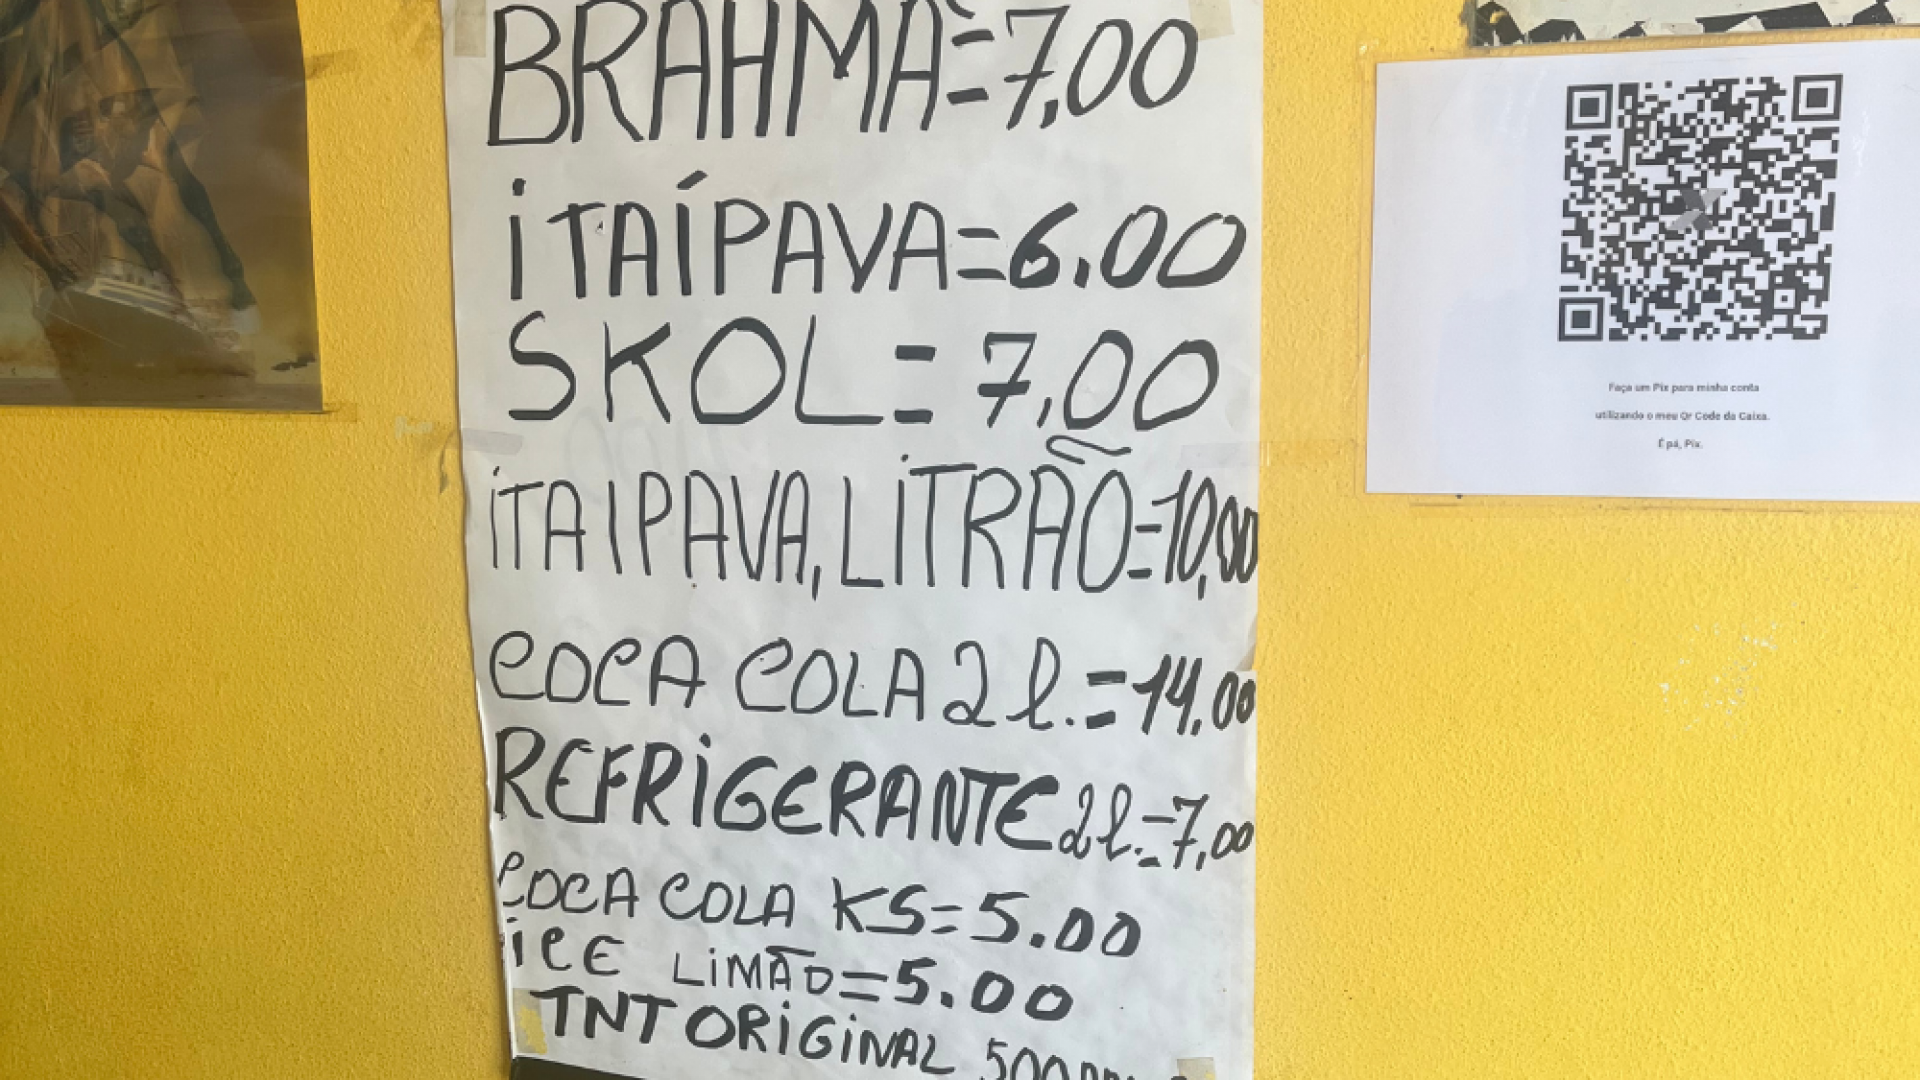 BRAHMA=7,00
ITAÍPAVA=6.00
SKOL=7,00
ITAIPAVA, LITRÃO=10,00
COCA COLA 2l.=14.00
REFRIGERANTE 2l.=7,00
COCA COLA KS=5.00
ICE LIMÃO=5.00
TNT ORIGINAL
Faça um Pix para minha conta
utilizando o meu Qr Code da Caixa.
É pá, Pix.